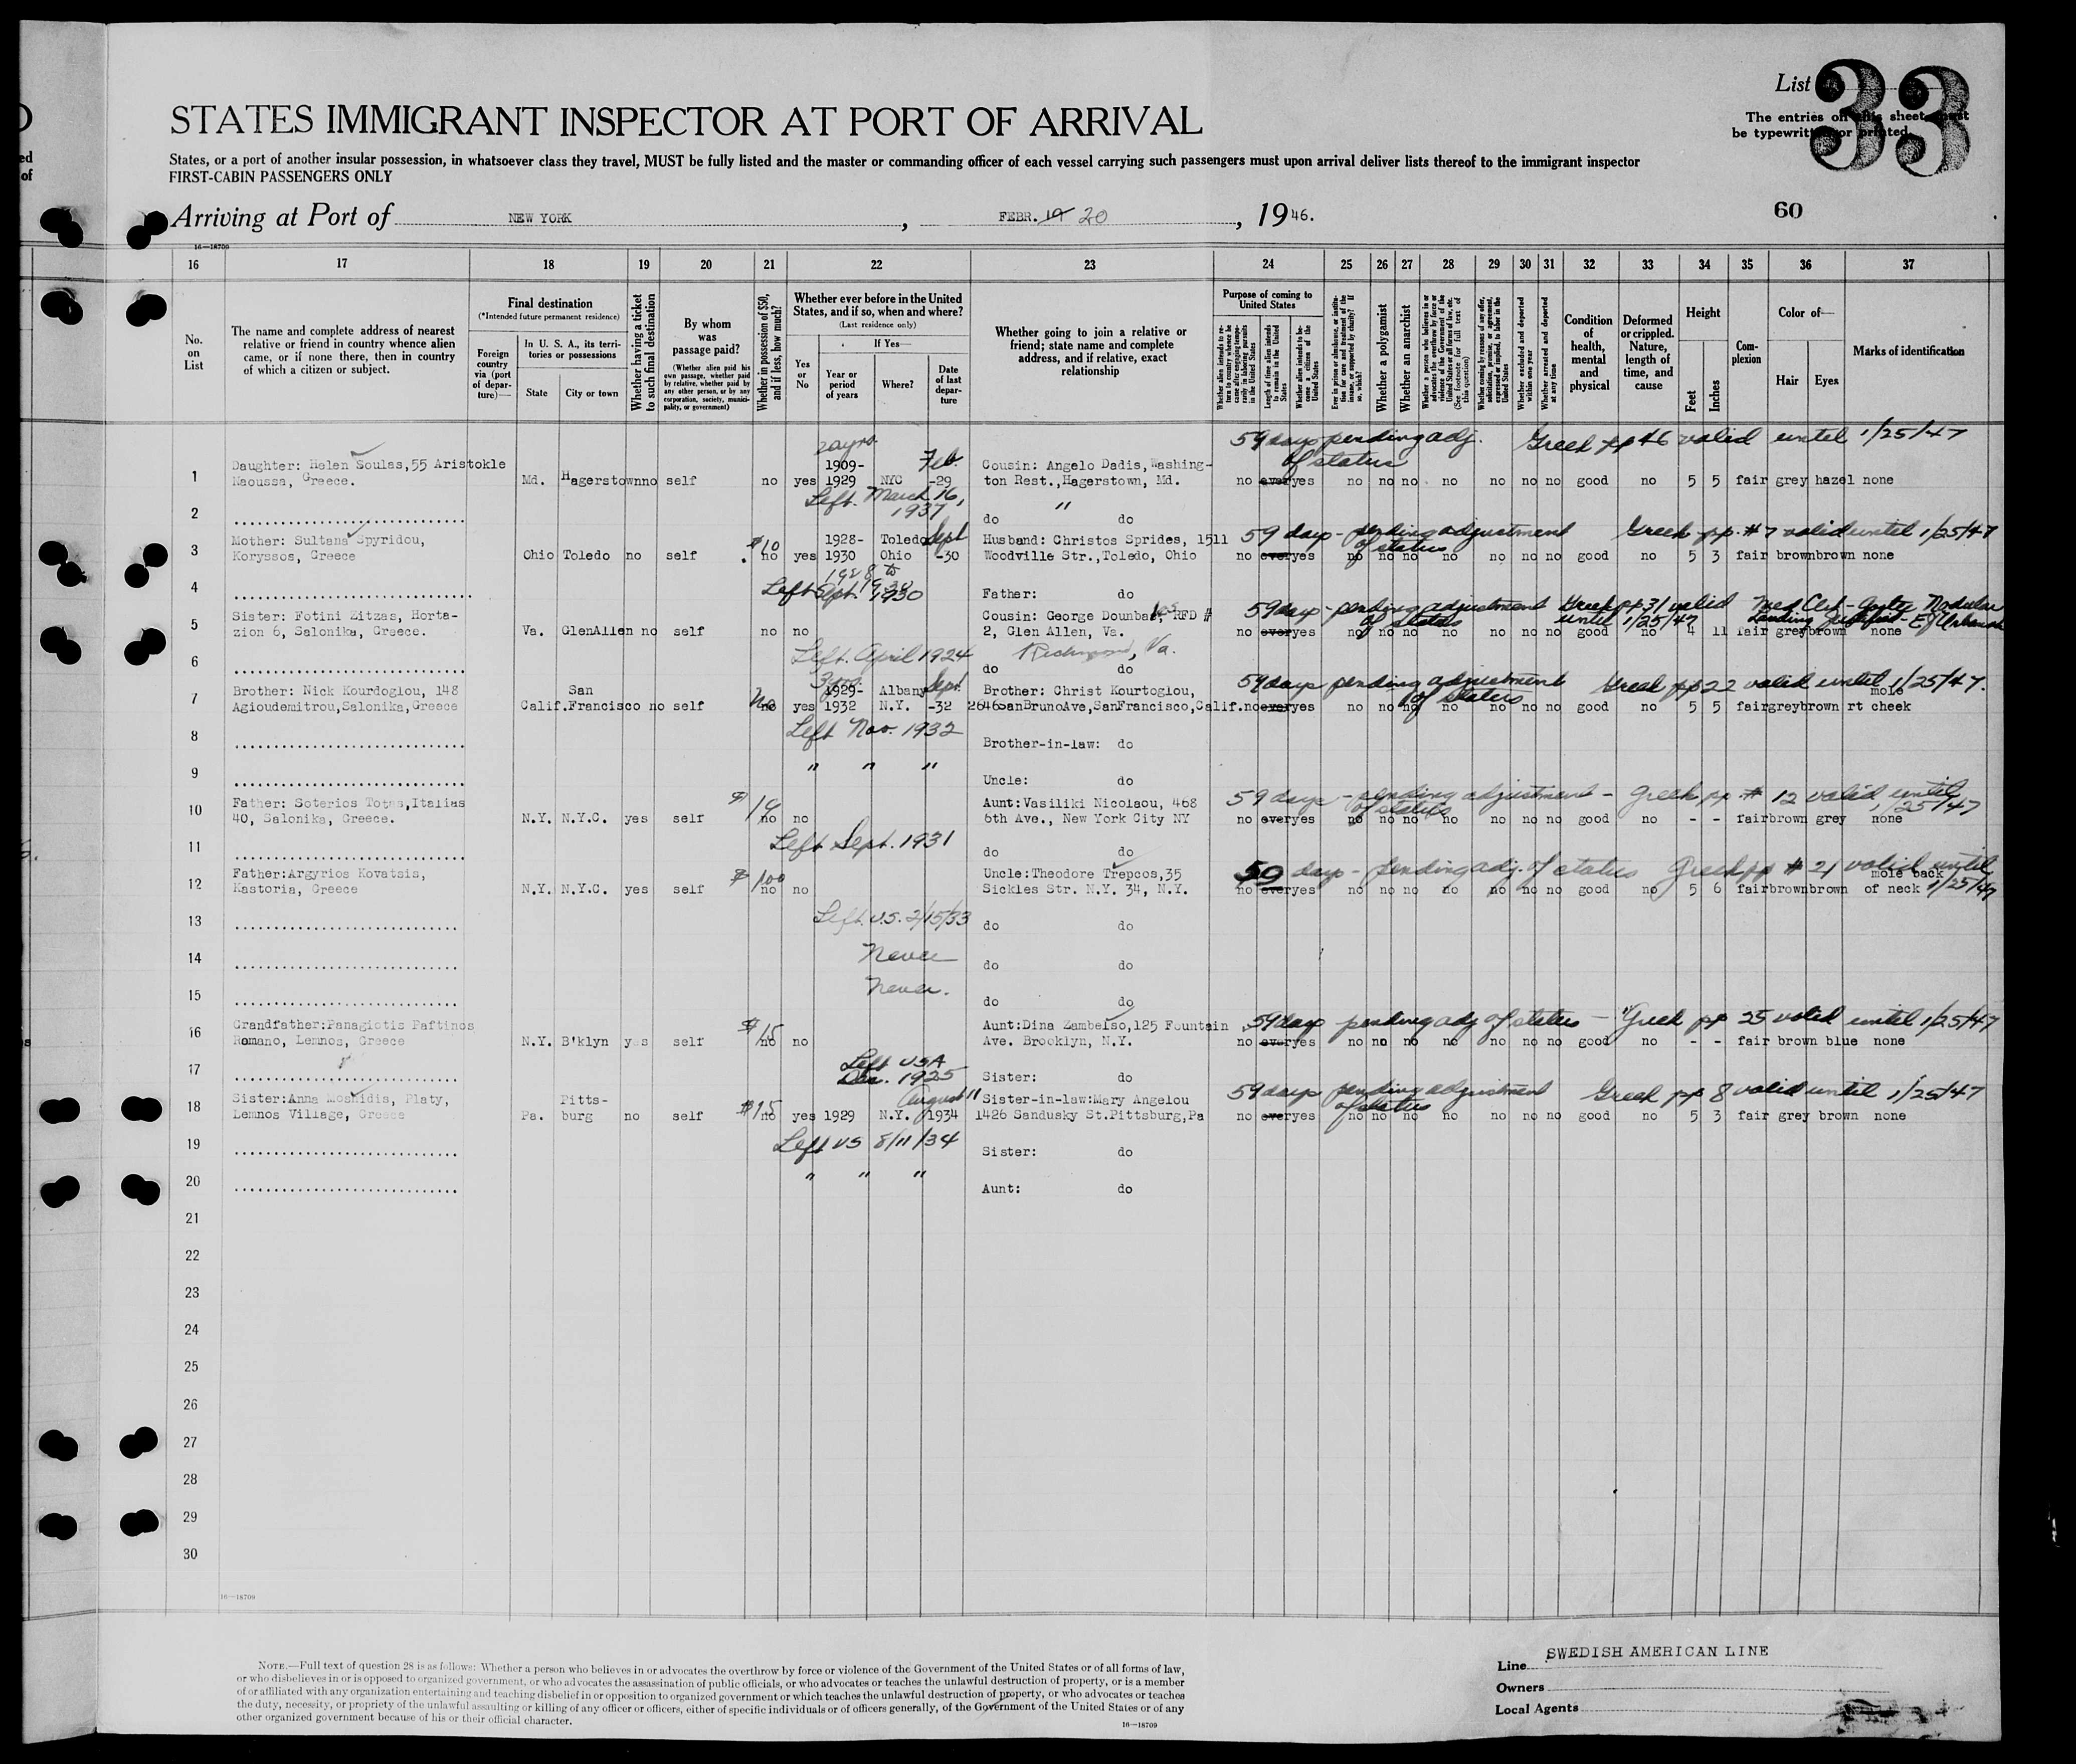 List 33
STATES IMMIGRANT INSPECTOR AT PORT OF ARRIVAL
The entries on this sheet must
be typewritten or printed.
States, or a port of another insular possession, in whatsoever class they travel, MUST be fully listed and the master or commanding officer of each vessel carrying such passengers must upon arrival deliver lists thereof to the immigrant inspector
FIRST-CABIN PASSENGERS ONLY
Arriving at Port of NEW YORK, FEBR. 19 20, 1946.
60
16—18709
16 17 18 19 20 21 22 23 24 25 26 27 28 29 30 31 32 33 34 35 36 37
No. on List
The name and complete address of nearest relative or friend in country whence alien came, or if none there, then in country of which a citizen or subject.
Final destination
(*Intended future permanent residence)
Foreign country via (port of departure)—
In U. S. A., its territories or possessions
State
City or town
Whether having a ticket to such final destination
By whom was passage paid?
(Whether alien paid his own passage, whether paid by relative, whether paid by any other person, or by any corporation, society, municipality, or government)
Whether in possession of $50, and if less, how much?
Whether ever before in the United States, and if so, when and where?
(Last residence only)
Yes or No
If Yes—
Year or period of years
Where?
Date of last departure
Whether going to join a relative or friend; state name and complete address, and if relative, exact relationship
Purpose of coming to United States
Length of time alien intends to remain in the United States
Whether alien intends to become a citizen of the United States
Whether a polygamist
Whether an anarchist
Whether excluded and deported within one year
Whether arrested and deported at any time
Condition of health, mental and physical
Deformed or crippled. Nature, length of time, and cause
Height
Feet
Inches
Complexion
Color of—
Hair
Eyes
Marks of identification
20 yrs. Feb. 59 days pending adj. of status Greek pp 46 valid until 1/25/47
1 Daughter: Helen Soulas, 55 Aristokle 1909- Cousin: Angelo Dadis, Washing-
Naoussa, Greece. Md. Hagerstown no self no yes 1929 NYC -29 ton Rest., Hagerstown, Md. no ever yes no no no no no no no good no 5 5 fair grey hazel none
Left. March 16, 1937 "
2 do do
3 Mother: Sultana Spyridou, $10 1928- Toledo Sept Husband: Christos Sprides, 1511 59 days - pending adjustment of status Greek pp. #7 valid until 1/25/47
Koryssos, Greece Ohio Toledo no self no yes 1930 Ohio -30 Woodville Str., Toledo, Ohio no ever yes no no no no no no no good no 5 3 fair brown brown none
1928 to
Left Sept. 1930
4 Father: do
5 Sister: Fotini Zitzas, Horta- Cousin: George Dounbal RFD # 59 days - pending adjustment of status Greek pp 31 valid until 1/25/47 Med Clf - Goiter Nodular
zion 6, Salonika, Greece. Va. GlenAllen no self no no 2, Glen Allen, Va. no ever yes no no no no no no no good no 4 11 fair grey brown none
Left. April 1924 Richmond, Va.
6 do do
3 yrs. Sept. 59 days pending adjustment of status Greek pp 22 valid until 1/25/47.
7 Brother: Nick Kourdoglou, 148 San 1929- Albany Brother: Christ Kourtoglou, mole
Agioudemitrou, Salonika, Greece Calif. Francisco no self no yes 1932 N.Y. -32 2646 SanBrunoAve, SanFrancisco, Calif. no ever yes no no no no no no no good no 5 5 fair grey brown rt cheek
Left Nov. 1932
8 Brother-in-law: do
" " "
9 Uncle: do
10 Father: Soterios Totas, Italias $10 Aunt: Vasiliki Nicolaou, 468 59 days - pending adjustment of status - Greek pp # 12 valid until 1/25/47
40, Salonika, Greece. N.Y. N.Y.C. yes self no no 6th Ave., New York City NY no ever yes no no no no no no no good no - - fair brown grey none
Left Sept. 1931
11 do do
12 Father: Argyrios Kovatsis, $100 Uncle: Theodore Trepcos, 35 59 days - pending adj. of status Greek pp # 21 valid until 1/25/47 mole back
Kastoria, Greece N.Y. N.Y.C. yes self no no Sickles Str. N.Y. 34, N.Y. no ever yes no no no no no no no good no 5 6 fair brown brown of neck
13 Left U.S. 2/15/33 do do
14 Never do do
15 Never. do do
16 Grandfather: Panagiotis Paftinos $15 Aunt: Dina Zambelso, 125 Fountain 59 days pending adj of status - Greek pp 25 valid until 1/25/47
Romano, Lemnos, Greece N.Y. B'klyn yes self no no Ave. Brooklyn, N.Y. no ever yes no no no no no no no good no - - fair brown blue none
Left USA
Dec. 1925
17 Sister: do
18 Sister: Anna Moskidis, Platy, Pitts- $15 August 11 Sister-in-law: Mary Angelou 59 days pending adjustment of status Greek pp 8 valid until 1/25/47
Lemnos Village, Greece Pa. burg no self no yes 1929 N.Y. 1934 1426 Sandusky St. Pittsburg, Pa no ever yes no no no no no no no good no 5 3 fair grey brown none
19 Left US 8/11/34 Sister: do
" " "
20 Aunt: do
21
22
23
24
25
26
27
28
29
30
16—18709
NOTE.—Full text of question 28 is as follows: Whether a person who believes in or advocates the overthrow by force or violence of the Government of the United States or of all forms of law,
or who disbelieves in or is opposed to organized government, or who advocates the assassination of public officials, or who advocates or teaches the unlawful destruction of property, or is a member
of or affiliated with any organization entertaining and teaching disbelief in or opposition to organized government or which teaches the unlawful destruction of property, or who advocates or teaches
the duty, necessity, or propriety of the unlawful assaulting or killing of any officer or officers, either of specific individuals or of officers generally, of the Government of the United States or of any
other organized government because of his or their official character.
16—18709
Line SWEDISH AMERICAN LINE
Owners
Local Agents